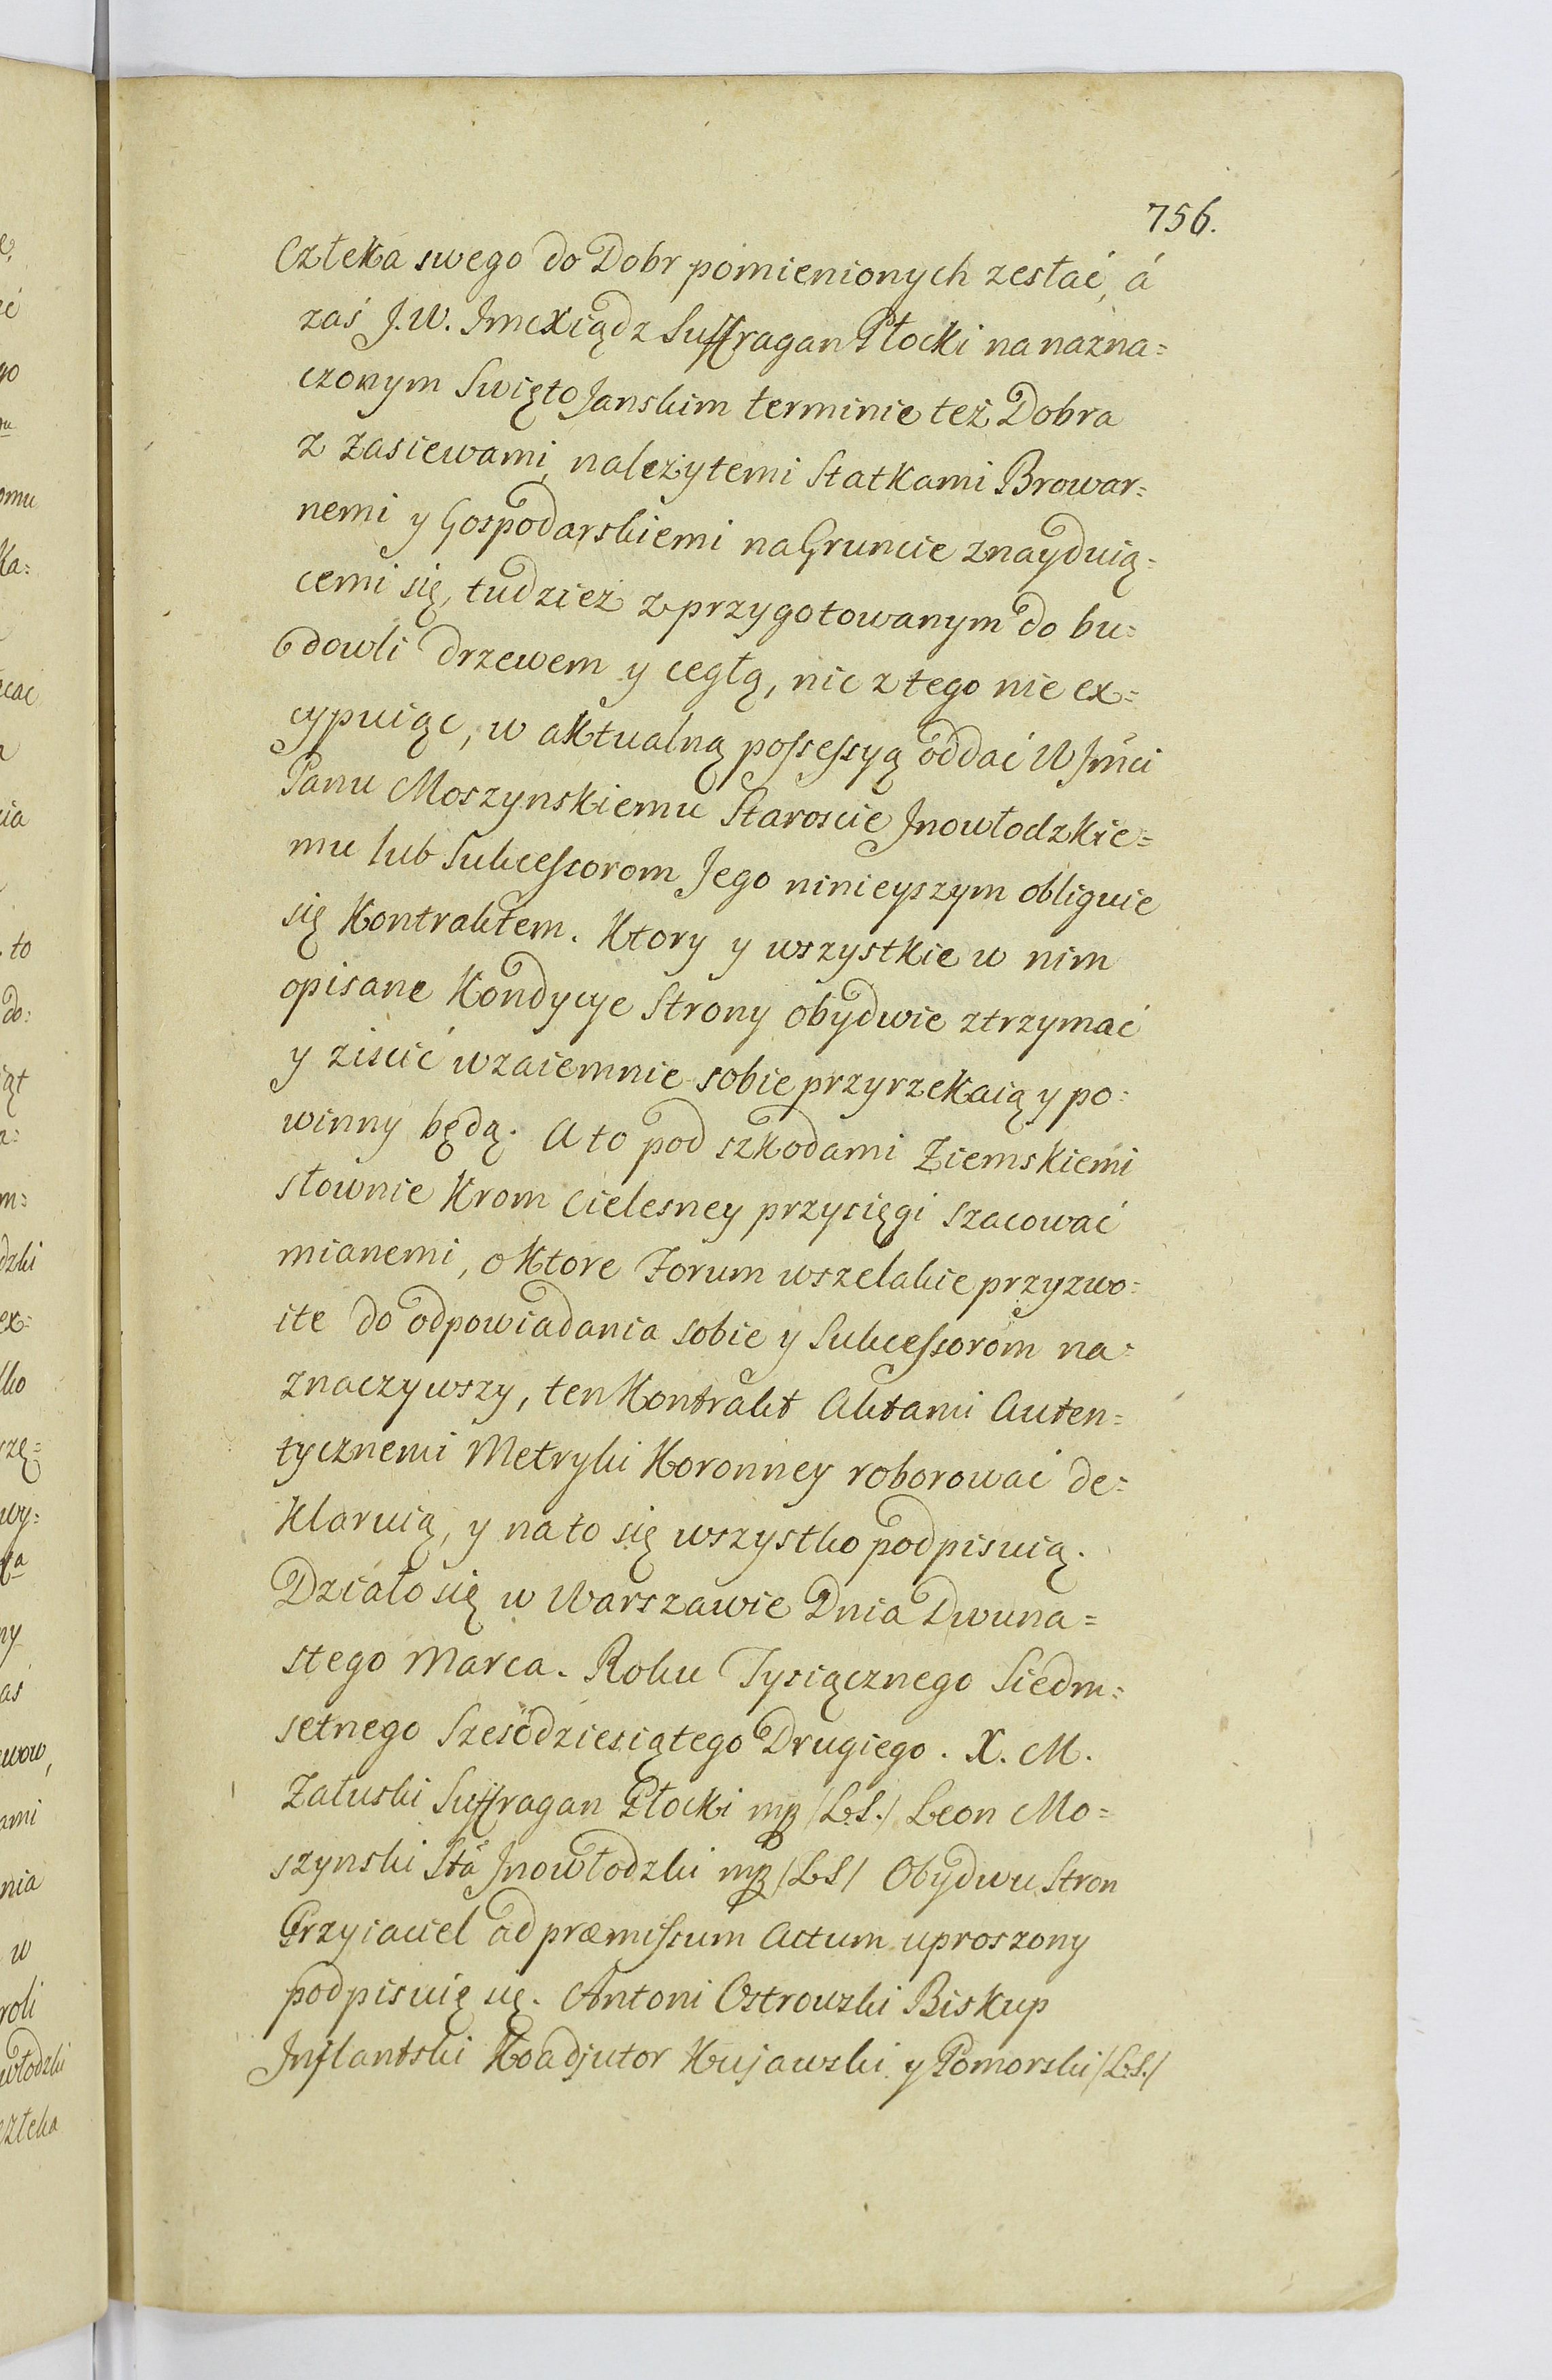 756.
Człeka swego do Dobr pomienionych zesłać, á
zaś J.W. Jmcxiądz Suffragan Płocki na nazna=
czonym Swięto Janskim terminie też Dobra
z zasiewami, należytemi Statkami Browar=
nemi y Gospodarskiemi na Gruncie znayduią=
cemi się, tudzież z przygotowanym do bu=
dowli drzewem y cegłą, nic z tego nie ex=
cypuiąc, w aktualną possessyą oddać W Jmci
Panu Moszynskiemu Staroscie Jnowłodzkie=
mu lub Sukcessorom Jego ninieyszym obliguie
się Kontraktem. Ktory y wszystkie w nim
opisane Kondycye Strony obydwie ztrzymać
y ziscić wzaiemnie sobie przyrzekaią y po=
winny będą. A to pod szkodami Ziemskiemi
słownie Krom Cielesney przysięgi szacować
mianemi, o Ktore Forum wszelakie przyzwo=
ite do odpowiadania sobie y Sukcessorom na=
znaczywszy, ten Kontrakt Aktami Auten=
tycznemi Metryki Koronney roborować de=
klaruią, y na to się wszystko podpisuią.
Działo się w Warszawie Dnia Dwuna=
stego Marca. Roku Tysiącznego Siedm=
setnego Sześćdziesiątego Drugiego. X. M.
Załuski Suffragan Płocki mp /L.S./ Leon Mo=
szynski Sta Jnowłodzki mp /LS/ Obydwu Stron
Przyiaciel ad præmissum Actum uproszony
podpisuię się. Antoni Ostrowski Biskup
Jnflantski Koadjutor Kujawski y Pomorski /L.S./